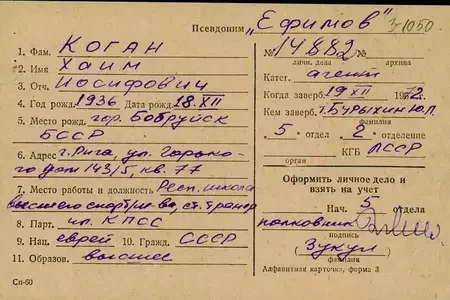 Псевдоним „Ефимов" 3-1050
1. Фам. Коган
2. Имя Хаим
3. Отч. Иосифович
4. Год рожд. 1936 Дата рожд. 18.XII
5. Место рожд. гор. Бобруйск
БССР
6. Адрес г. Рига, ул. Горько-
го дом 143/5, кв. 77
7. Место работы и должность Респ. школа
высшего спортм-ва, ст. тренер
8. Парт. чл. КПСС
9. Нац. еврей 10. Гражд. СССР
11. Образов. высшее
Сп-60
№ 14882 №
личн. дела архива
Катег. агент
Когда заверб. 19 XII 1972.
Кем заверб. т. Бурыхин Ю.П.
фамилия
5 отдел 2 отделение
КГБ ЛССР
орган
Оформить личное дело и
взять на учет
Нач. 5 отдела
полковник
подпись
(Зукул)
(фамилия)
Алфавитная карточка, форма 3